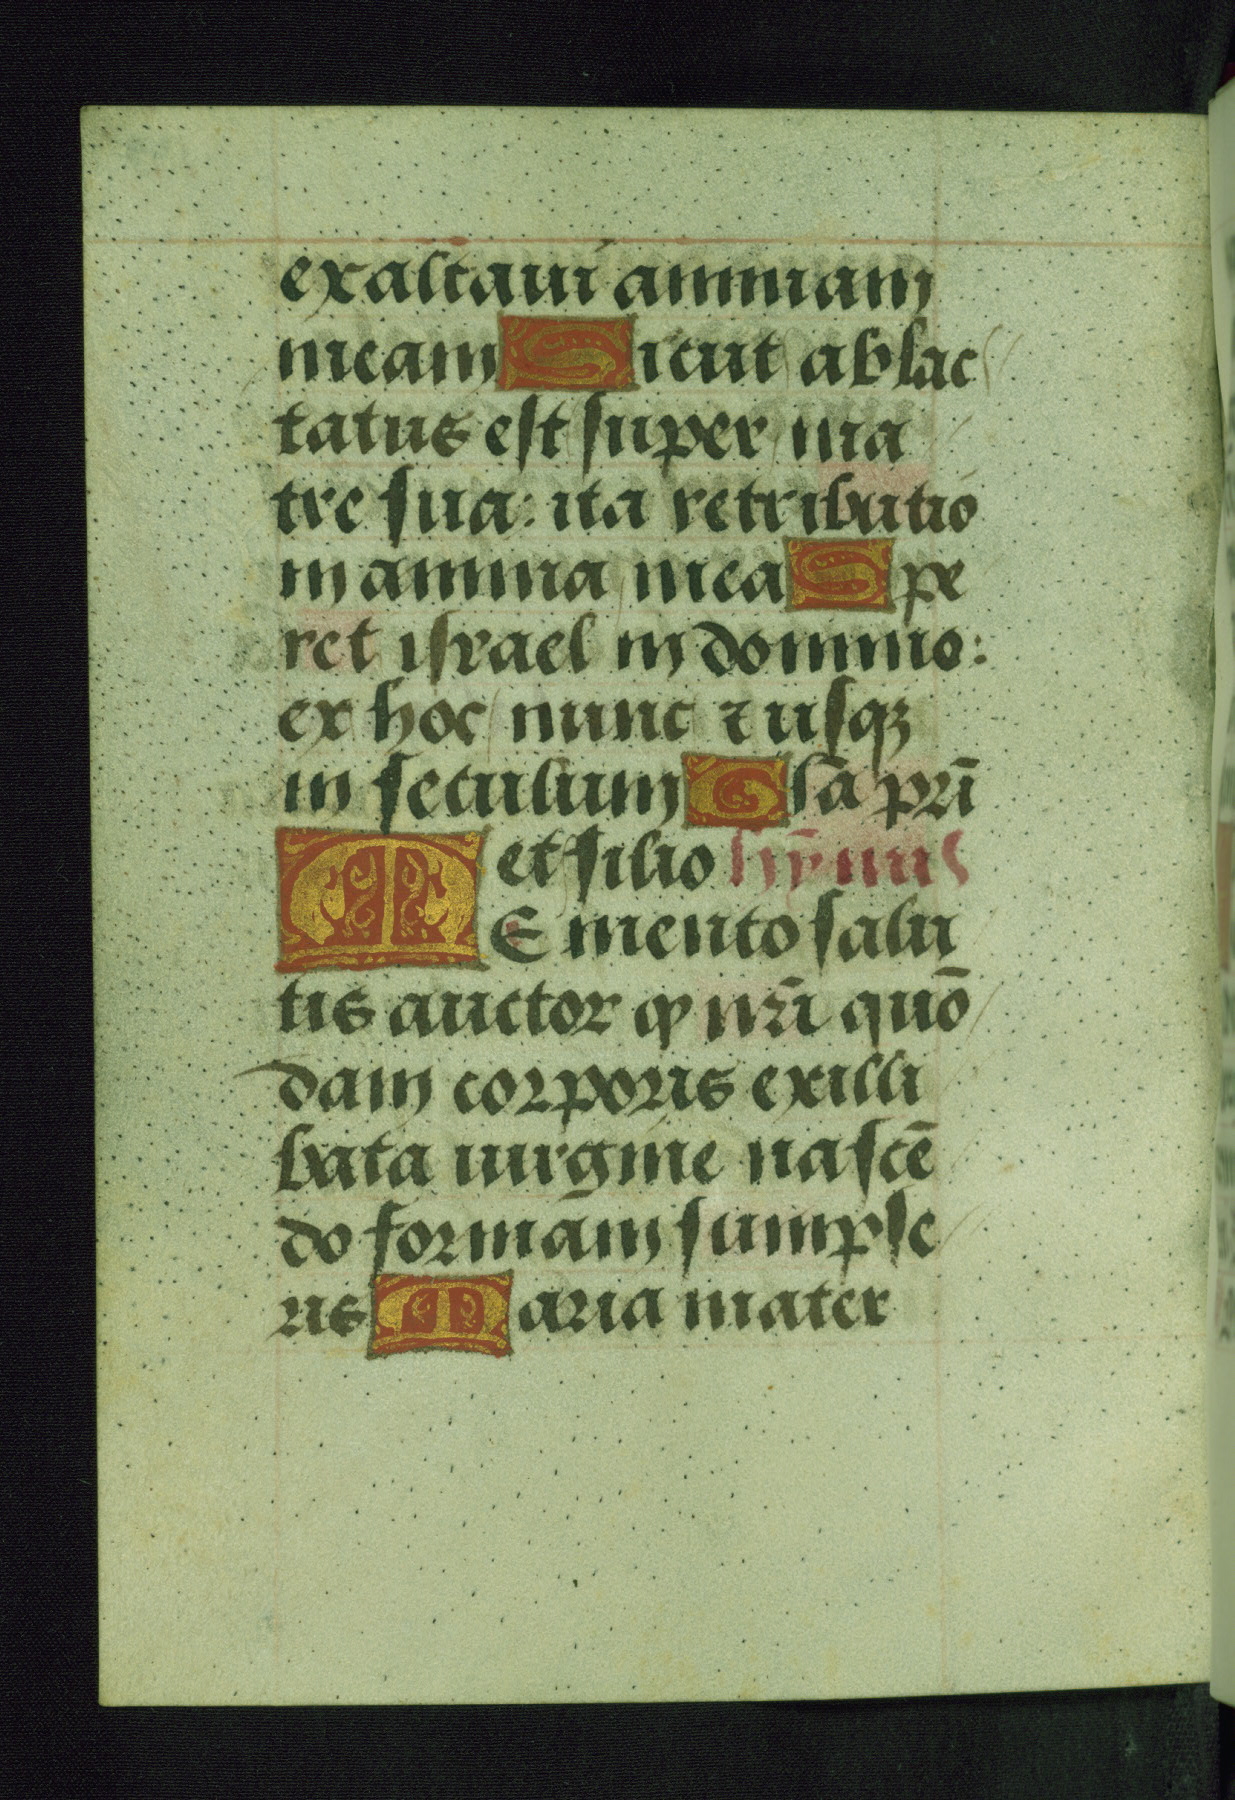 exaltaui animam
meam Sicut ablac
tatus est super ma
tre sua: ita retributio
in anima mea Spe
ret israel in domino:
ex hoc nunc ⁊ usqꝫ
in seculum Glã prĩ
et filio hỹmnus
MEmento salu
tis auctor ꝙ nrĩ quõ
dam corporis ex illi
bata uirgine nascẽ
do formam sumpse
ris Maria mater